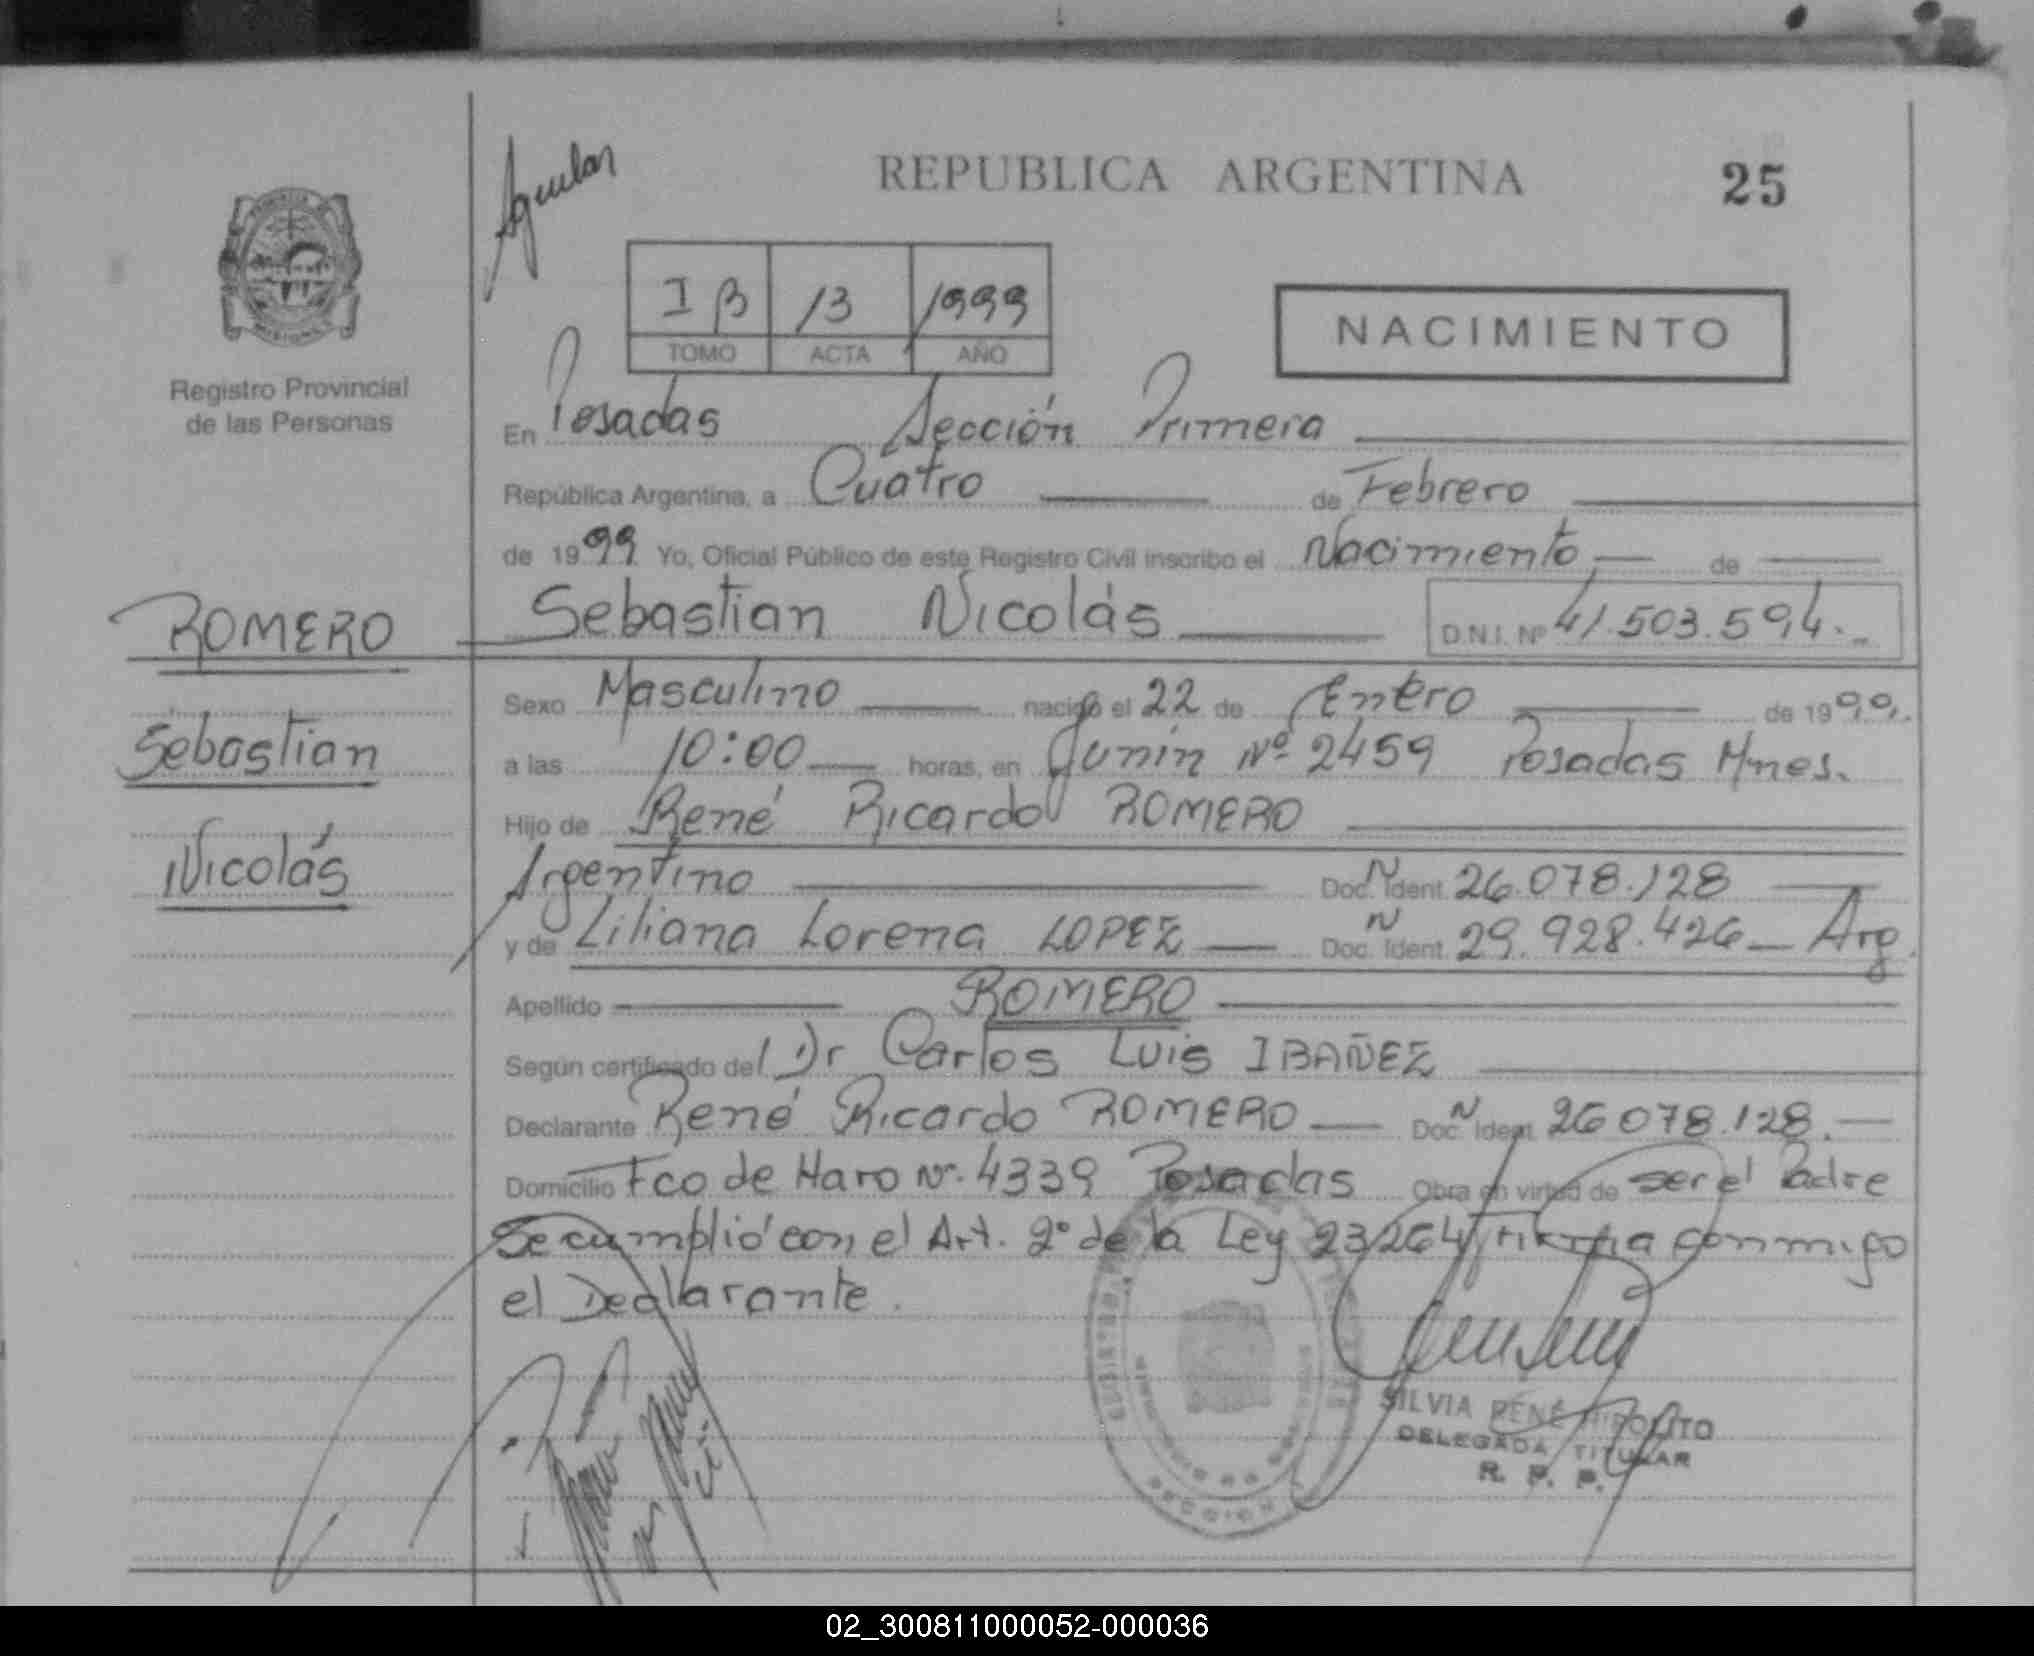 Aguilar
REPUBLICA ARGENTINA
25
I B 13 1999
TOMO ACTA AÑO
NACIMIENTO
Registro Provincial
de las Personas
En Posadas Sección Primera
República Argentina, a Cuatro de Febrero
de 1999 Yo, Oficial Público de este Registro Civil inscribo el Nacimiento de
ROMERO
Sebastian
Nicolás
Sebastian Nicolás D.N.I. Nº 41.503.594.-
Sexo Masculino nacido el 22 de Enero de 1999.
a las 10:00 horas, en Junin Nº 2459 Posadas Mnes.
Hijo de René Ricardo ROMERO
Argentino Doc. N Ident. 26.078.128
y de Liliana Lorena LOPEZ Doc. N Ident. 29.928.426 Arg.
Apellido ROMERO
Según certificado del Dr Carlos Luis IBAÑEZ
Declarante René Ricardo ROMERO Doc. N Ident. 26 078.128.
Domicilio Fco de Haro Nº. 4339 Posadas Obra en virtud de ser el Padre
Se cumplió con el Art. 2º de la Ley 23264 Firma conmigo
el Declarante.
SILVIA RENÉ HIPOLITO
DELEGADA TITULAR
R. P. P.
02_300811000052-000036